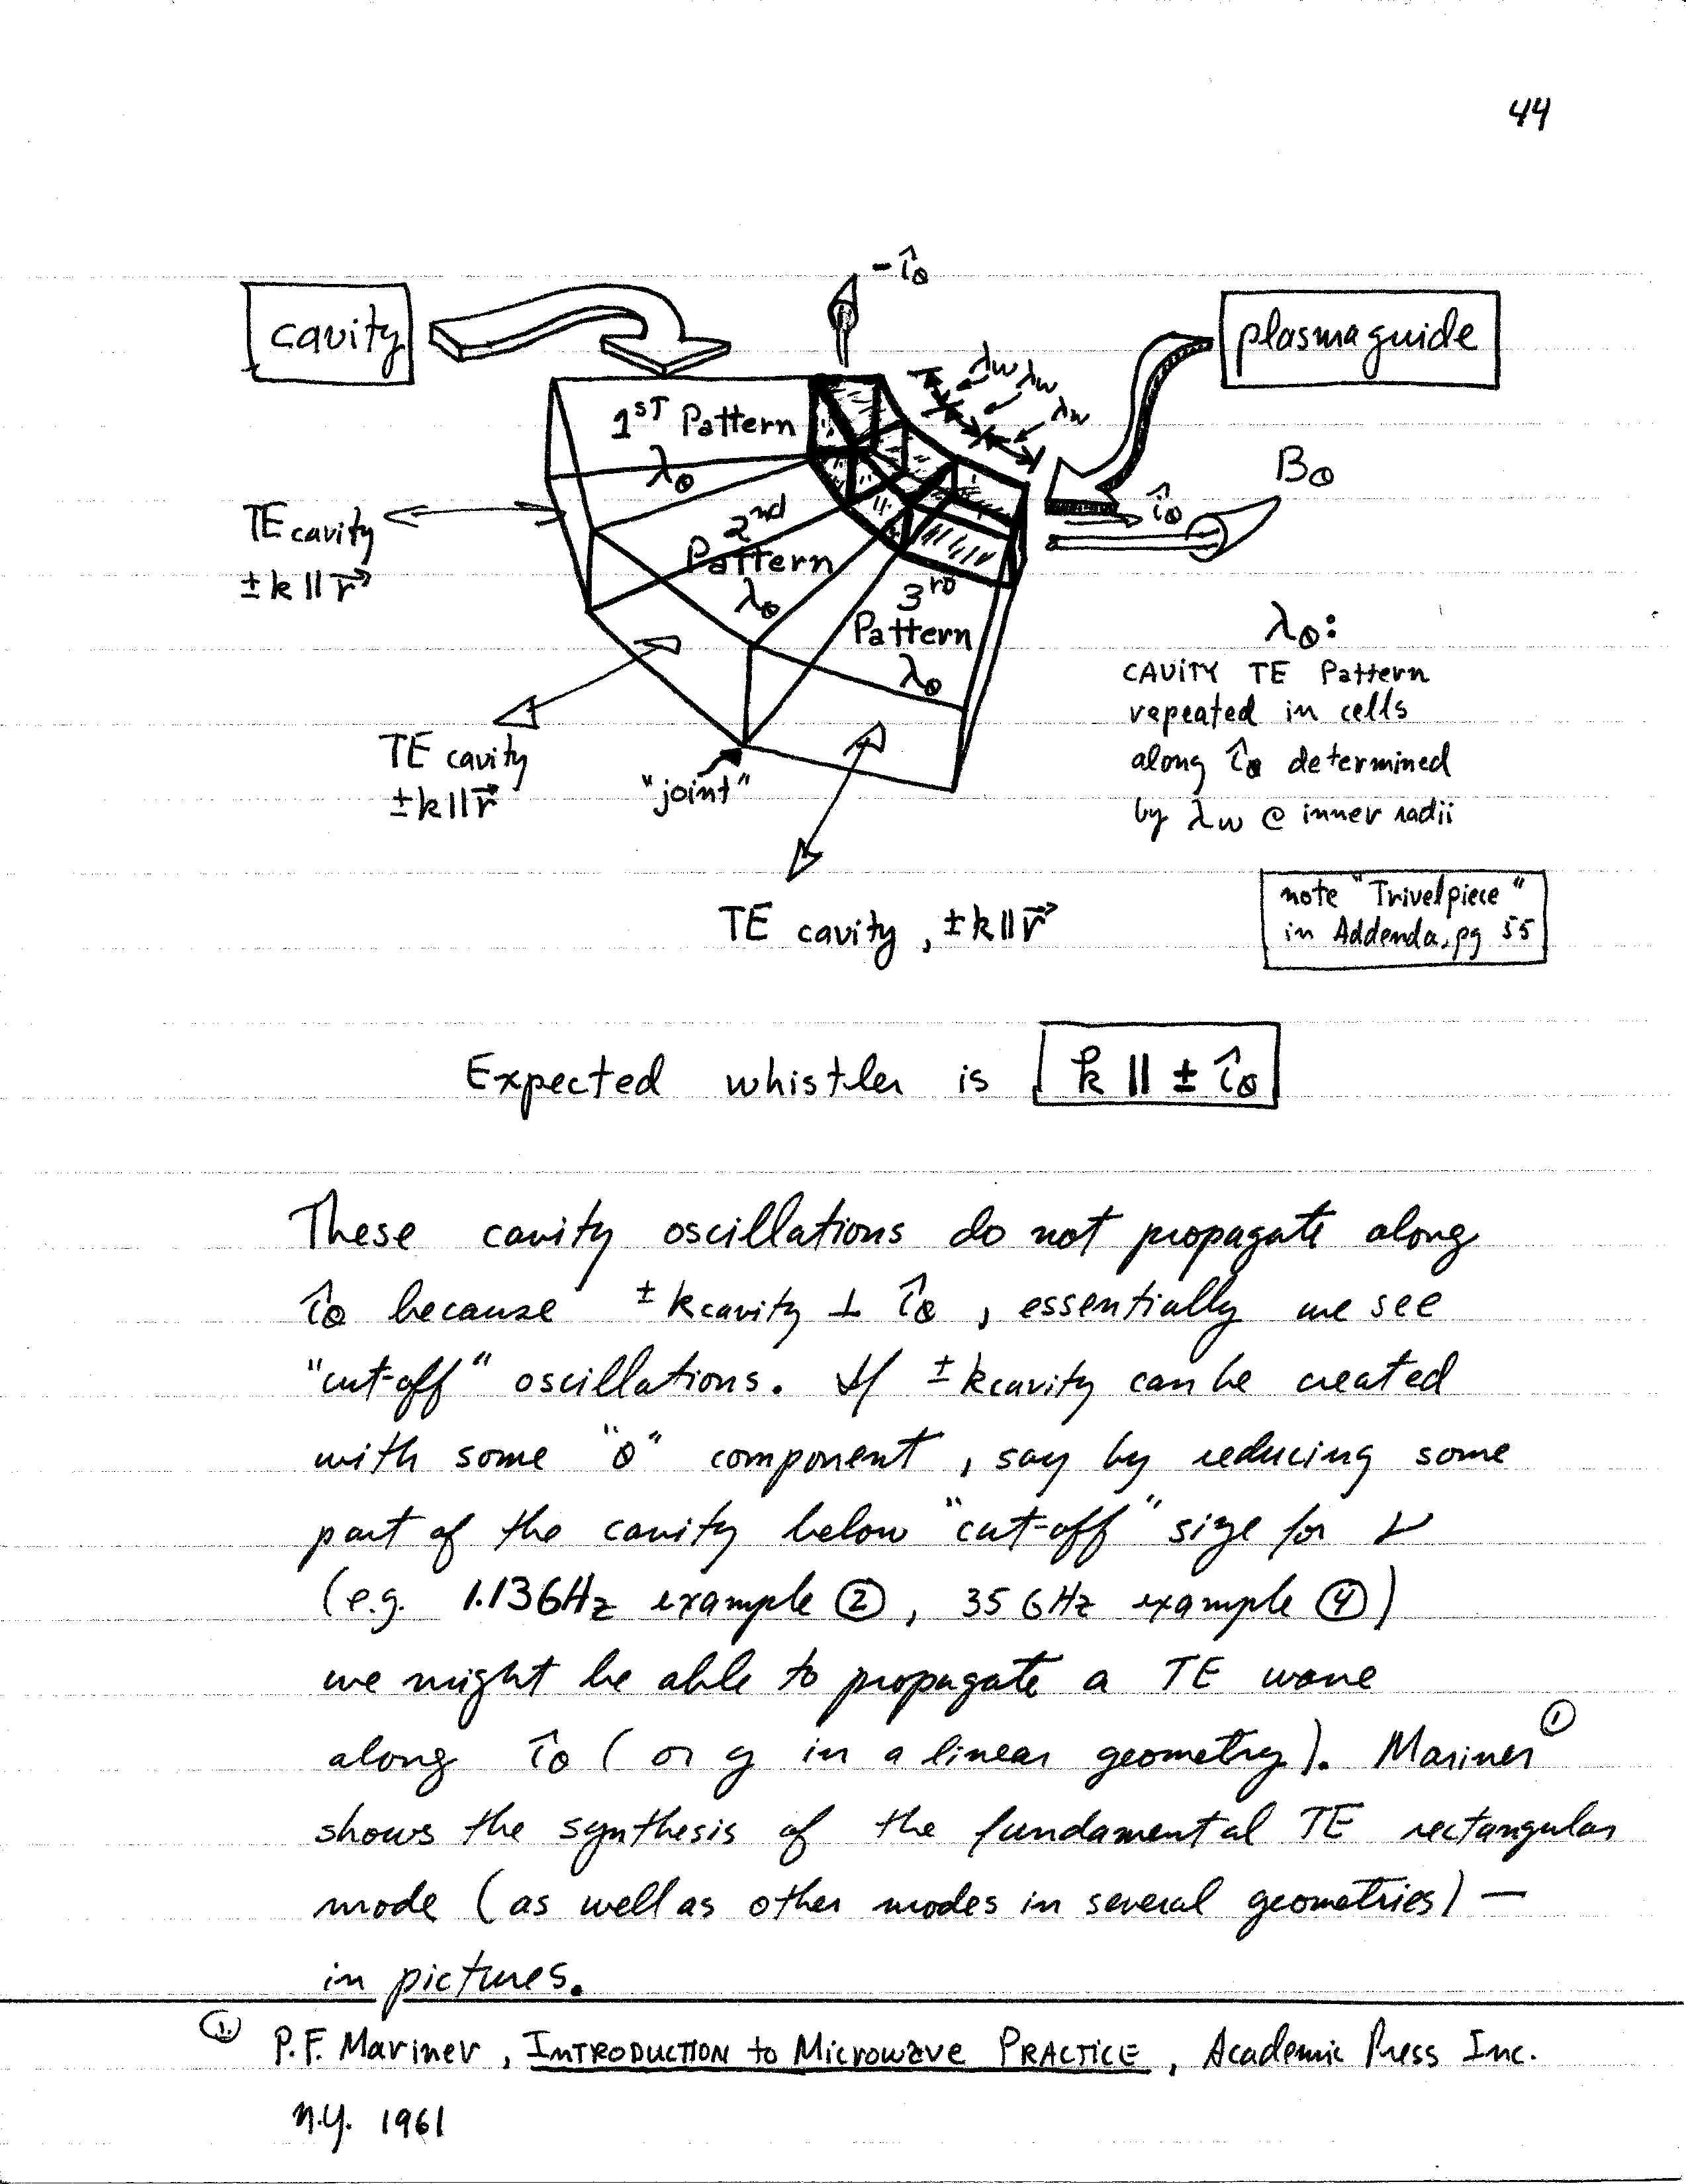 44
-î_θ
cavity
plasmaguide
λw
λw
λw
1ST Pattern
λ_θ
B_θ
î_θ
TE cavity
±k || r⃗
2nd
Pattern
λ_θ
3rd
Pattern
λ_θ
λ_θ:
CAVITY TE Pattern
repeated in cells
along î_θ determined
by λw @ inner radii
TE cavity
±k || r⃗
"joint"
TE cavity, ±k || r⃗
note "Trivelpiece"
in Addenda, pg 55
Expected whistler is k || ± î_θ
These cavity oscillations do not propagate along
î_θ because ±kcavity ⊥ î_θ, essentially we see
"cut-off" oscillations. If ±kcavity can be created
with some "θ" component, say by reducing some
part of the cavity below "cut-off" size for ν
(e.g. 1.13GHz example ②, 35 GHz example ④)
we might be able to propagate a TE wave
along î_θ (or y in a linear geometry). Mariner ①
shows the synthesis of the fundamental TE rectangular
mode (as well as other modes in several geometries) —
in pictures.
①. P.F. Mariner, INTRODUCTION to Microwave PRACTICE, Academic Press Inc.
N.Y. 1961